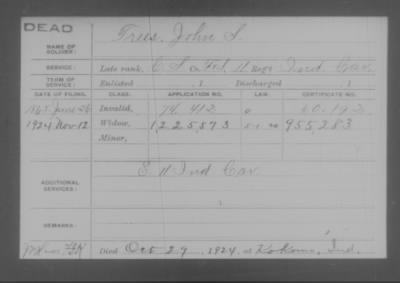 DEAD
NAME OF SOLDIER: Trees, John S.
SERVICE: Late rank, C S & Far, 11 Reg't Ind. Cav.
TERM OF SERVICE: Enlisted , 1 Discharged , 1
DATE OF FILING. CLASS. APPLICATION NO. LAW. CERTIFICATE NO.
1865 June 26 Invalid, 74 412 60.192
1924 Nov. 12 Widow, 1,225,573 955,283
Minor,
ADDITIONAL SERVICES: E. 11 Ind Cav
REMARKS:
Died Oct 29, 1924, at Kokomo, Ind.